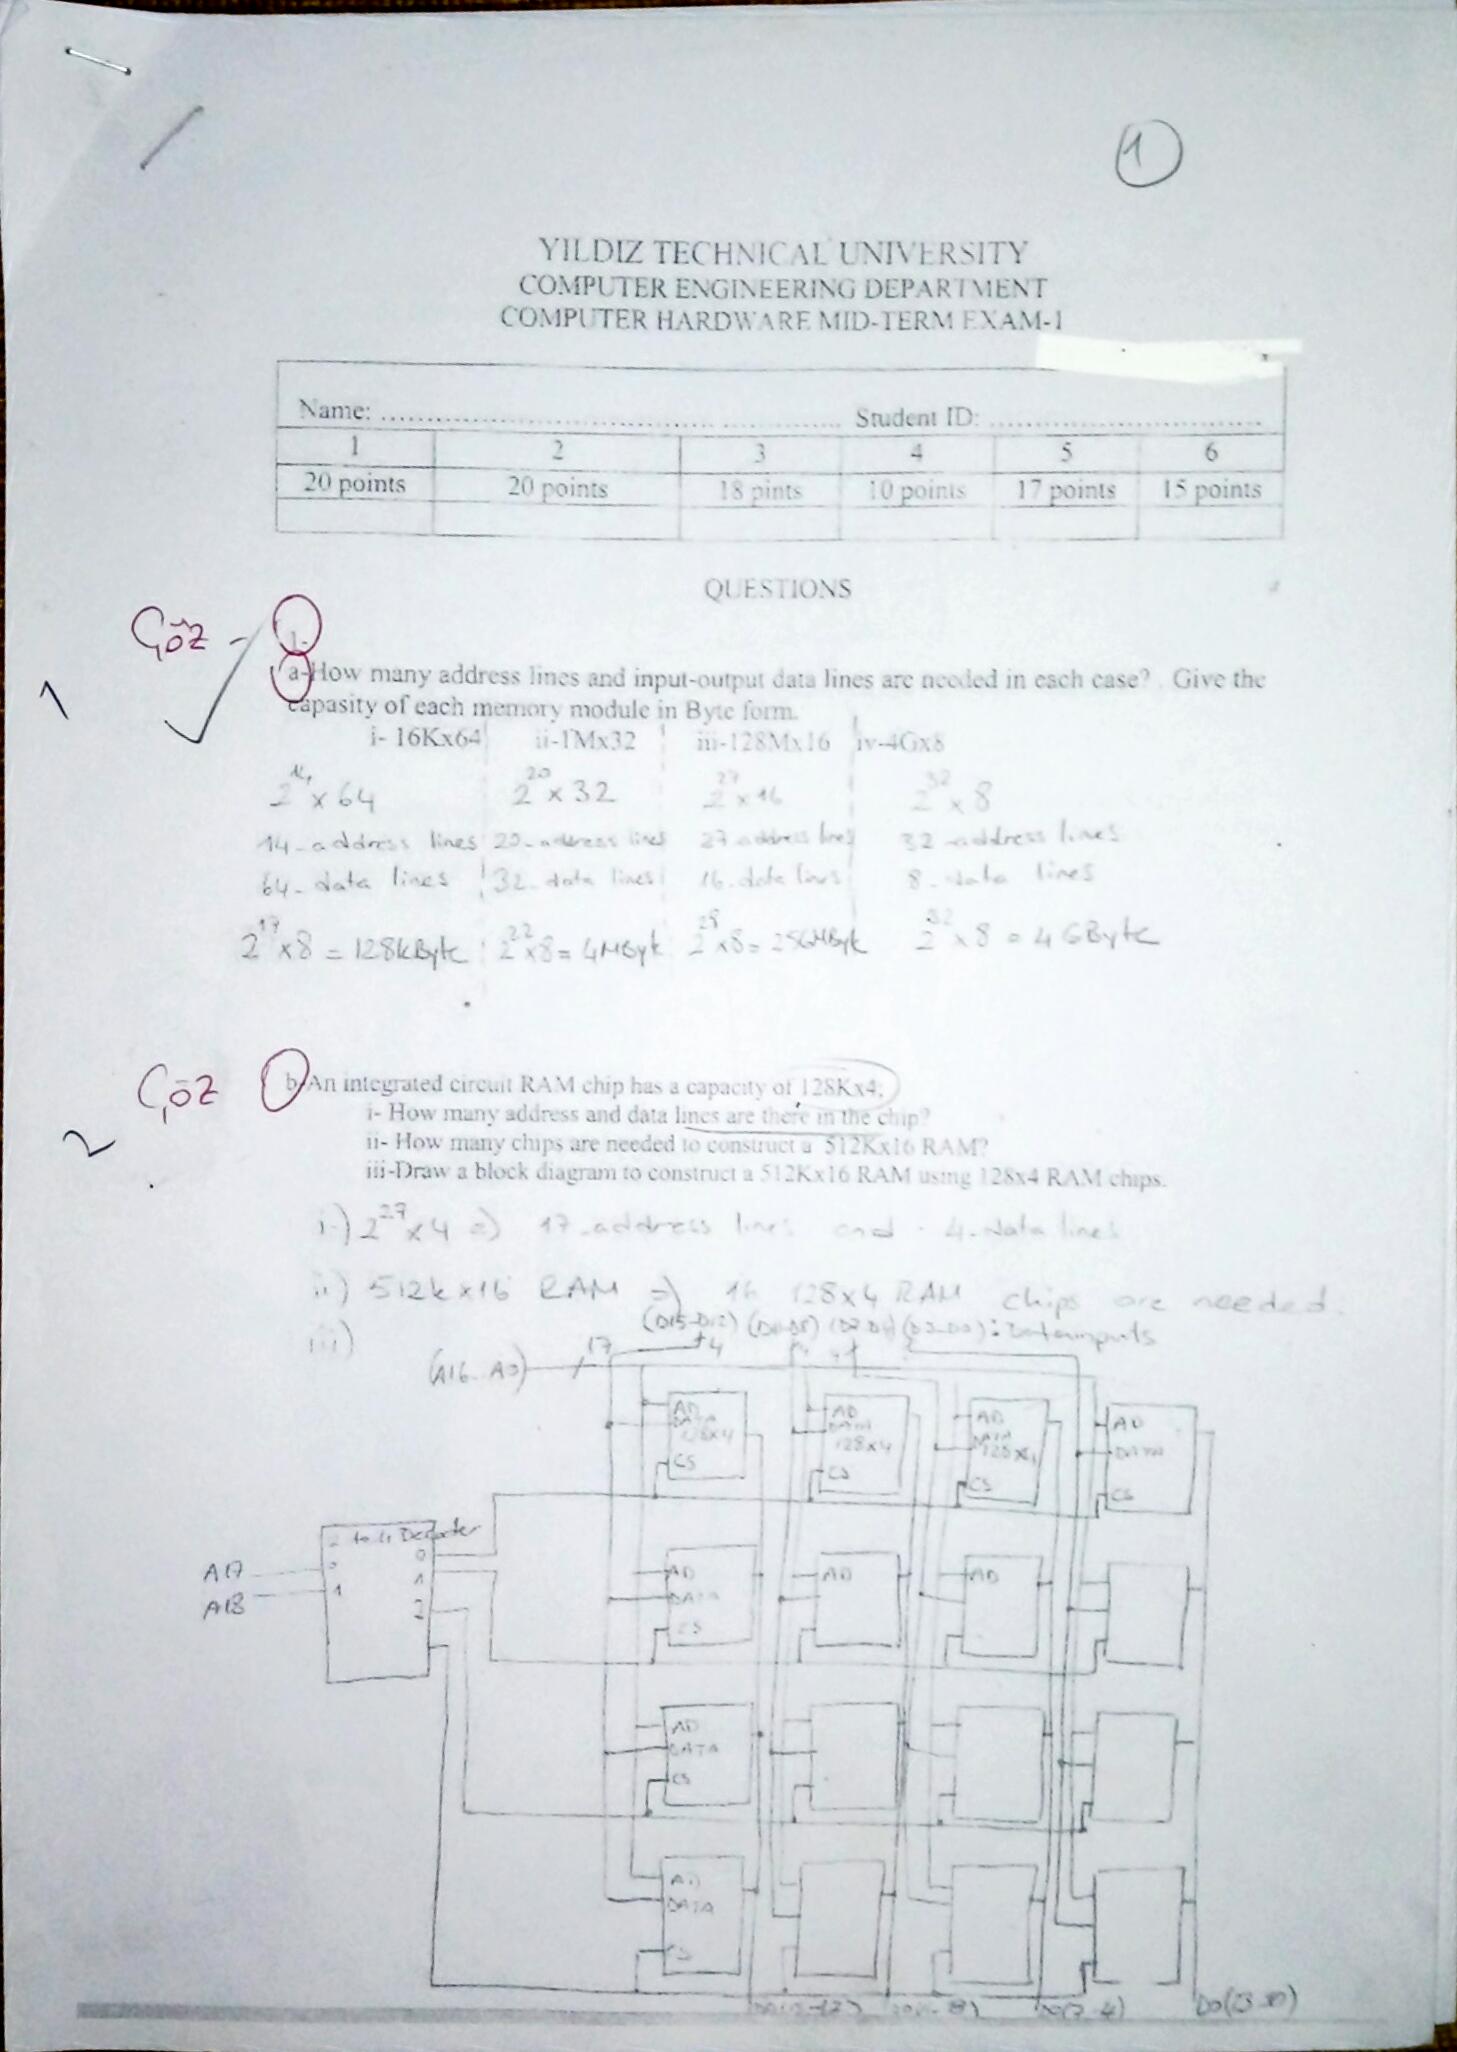 1
YILDIZ TECHNICAL UNIVERSITY
COMPUTER ENGINEERING DEPARTMENT
COMPUTER HARDWARE MID-TERM EXAM-1
Name: ........................ Student ID: ........................
1 2 3 4 5 6
20 points 20 points 18 pints 10 points 17 points 15 points
QUESTIONS
Çöz - 1-
1 a-How many address lines and input-output data lines are needed in each case? . Give the
capasity of each memory module in Byte form.
i- 16Kx64 ii-1Mx32 iii-128Mx16 iv-4Gx8
2^14 x 64 2^20 x 32 2^27 x 16 2^32 x 8
14-address lines 20-address lines 27 address lines 32 address lines
64- data lines 32-data lines 16-data lines 8-data lines
2^17 x8 = 128kByte 2^22 x8= 4MByte 2^28 x8= 256MByte 2^32 x 8 = 4 GByte
Çöz b-An integrated circuit RAM chip has a capacity of 128Kx4;
i- How many address and data lines are there in the chip?
2 ii- How many chips are needed to construct a 512Kx16 RAM?
iii-Draw a block diagram to construct a 512Kx16 RAM using 128x4 RAM chips.
i-) 2^27 x 4 => 17-address lines and 4-data lines
ii) 512k x16 RAM => 16 128x4 RAM chips are needed.
iii) (D15-D12) (D11-D8) (D7-D4) (D3-D0): Datainputs
(A16-A0) 17 4
AD AD AD AD
DATA DATA DATA DATA
128x4 128x4 128x4
CS CS CS CS
2 to 4 Decoder
0
A17 0 1 AD AD AD
A18 1 2 DATA
CS
AD
DATA
CS
AD
DATA
CS
DO(7-4) DO(3-0)